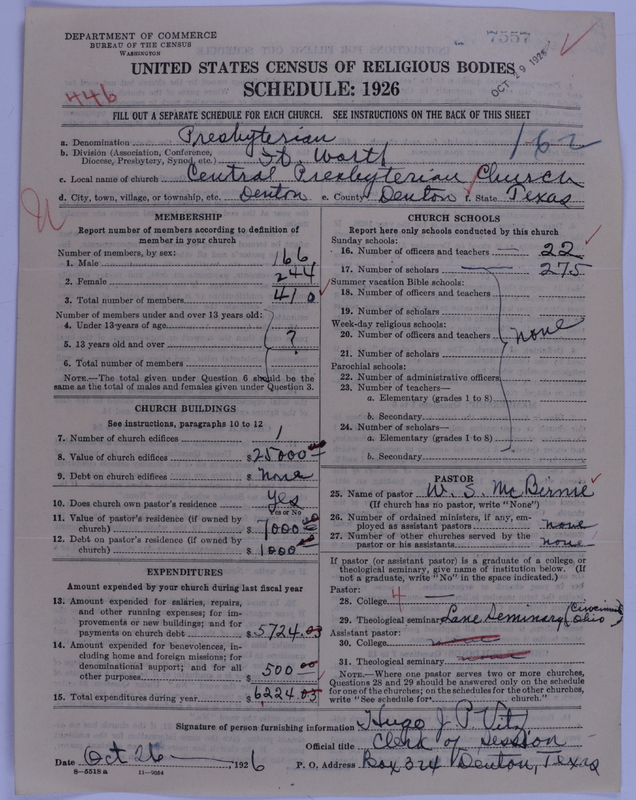 DEPARTMENT OF COMMERCE
BUREAU OF THE CENSUS
WASHINGTON
7557
OCT 29 1926
UNITED STATES CENSUS OF RELIGIOUS BODIES
446
SCHEDULE: 1926
FILL OUT A SEPARATE SCHEDULE FOR EACH CHURCH. SEE INSTRUCTIONS ON THE BACK OF THIS SHEET
162
a. Denomination Presbyterian
b. Division (Association, Conference,
Diocese, Presbytery, Synod, etc.) Ft. Worth
c. Local name of church Central Presbyterian Church
d. City, town, village, or township, etc. Denton e. County Denton f. State Texas
MEMBERSHIP
Report number of members according to definition of
member in your church
Number of members, by sex:
1. Male 166
2. Female 244
3. Total number of members 410
Number of members under and over 13 years old:
4. Under 13 years of age
5. 13 years old and over ?
6. Total number of members
NOTE.—The total given under Question 6 should be the
same as the total of males and females given under Question 3.
CHURCH BUILDINGS
See instructions, paragraphs 10 to 12
7. Number of church edifices 1
8. Value of church edifices $25000
9. Debt on church edifices $ None
10. Does church own pastor's residence yes
Yes or No
11. Value of pastor's residence (if owned by
church) $7000 00
12. Debt on pastor's residence (if owned by
church) $1000
EXPENDITURES
Amount expended by your church during last fiscal year
13. Amount expended for salaries, repairs,
and other running expenses; for im-
provements or new buildings; and for
payments on church debt $5724.03
14. Amount expended for benevolences, in-
cluding home and foreign missions; for
denominational support; and for all
other purposes $500 00
15. Total expenditures during year $6224.03
CHURCH SCHOOLS
Report here only schools conducted by this church
Sunday schools:
16. Number of officers and teachers 22
17. Number of scholars 275
Summer vacation Bible schools:
18. Number of officers and teachers
19. Number of scholars
Week-day religious schools:
20. Number of officers and teachers none
21. Number of scholars
Parochial schools:
22. Number of administrative officers
23. Number of teachers—
a. Elementary (grades 1 to 8)
b. Secondary
24. Number of scholars—
a. Elementary (grades 1 to 8)
b. Secondary
PASTOR
25. Name of pastor W. S. McBirnie
(If church has no pastor, write "None")
26. Number of ordained ministers, if any, em-
ployed as assistant pastors none
27. Number of other churches served by the
pastor or his assistants none
If pastor (or assistant pastor) is a graduate of a college, or
theological seminary, give name of institution below. (If
not a graduate, write "No" in the space indicated.)
Pastor:
28. College 4 —
29. Theological seminary Lane Seminary (Cincinnati Ohio)
Assistant pastor:
30. College
31. Theological seminary
NOTE.—Where one pastor serves two or more churches,
Questions 28 and 29 should be answered only on the schedule
for one of the churches; on the schedules for the other churches,
write "See schedule for church."
Signature of person furnishing information Hugo J. P. Vitz
Official title Clerk of Session
Date Oct 26, 1926 P. O. Address Box 324 Denton, Texas
8—5518a 11—9054